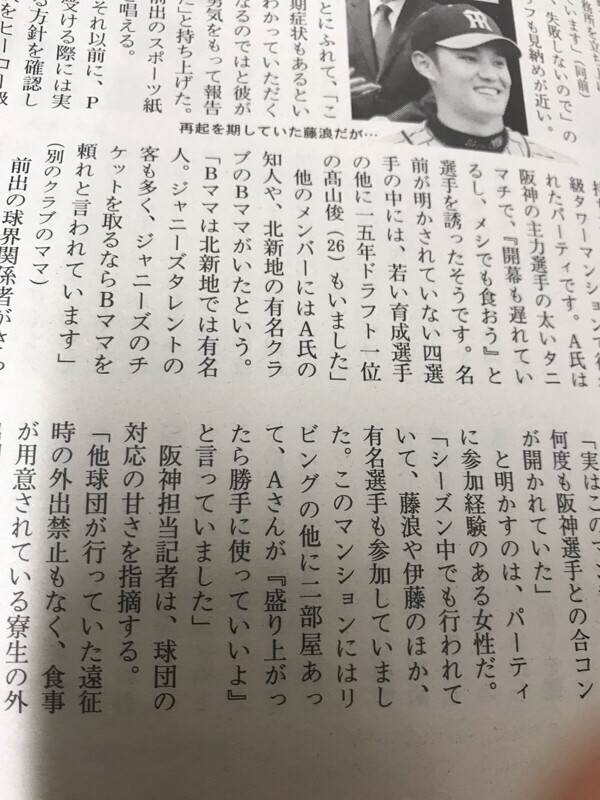 います」(同前)
、失敗しないので」の
フも見納めが近い。
とにふれて、「こ
期症状もあるとい
わかっていただく
なるのではと彼が
勇気をもって報告
たと持ち上げた。
前出のスポーツ紙
唱える。
それ以前に、P
受ける際には実
る方針を確認し
再起を期していた藤浪だが…
級タワーマンションで行
れたパーティです。A氏は
阪神の主力選手の太いタニ
マチで、『開幕も遅れてい
るし、メシでも食おう』と
選手を誘ったそうです。名
前が明かされていない四選
手の中には、若い育成選手
の他に一五年ドラフト一位
の髙山俊(26)もいました」
他のメンバーにはA氏の
知人や、北新地の有名クラ
ブのBママがいたという。
「Bママは北新地では有名
人。ジャニーズタレントの
客も多く、ジャニーズのチ
ケットを取るならBママを
頼れと言われています」
(別のクラブのママ)
前出の球界関係者がさら
「実はこのマン
何度も阪神選手との合コン
が開かれていた」
と明かすのは、パーティ
に参加経験のある女性だ。
「シーズン中でも行われて
いて、藤浪や伊藤のほか、
有名選手も参加していまし
た。このマンションにはリ
ビングの他に二部屋あっ
て、Aさんが『盛り上がっ
たら勝手に使っていいよ』
と言っていました」
阪神担当記者は、球団の
対応の甘さを指摘する。
「他球団が行っていた遠征
時の外出禁止もなく、食事
が用意されている寮生の外